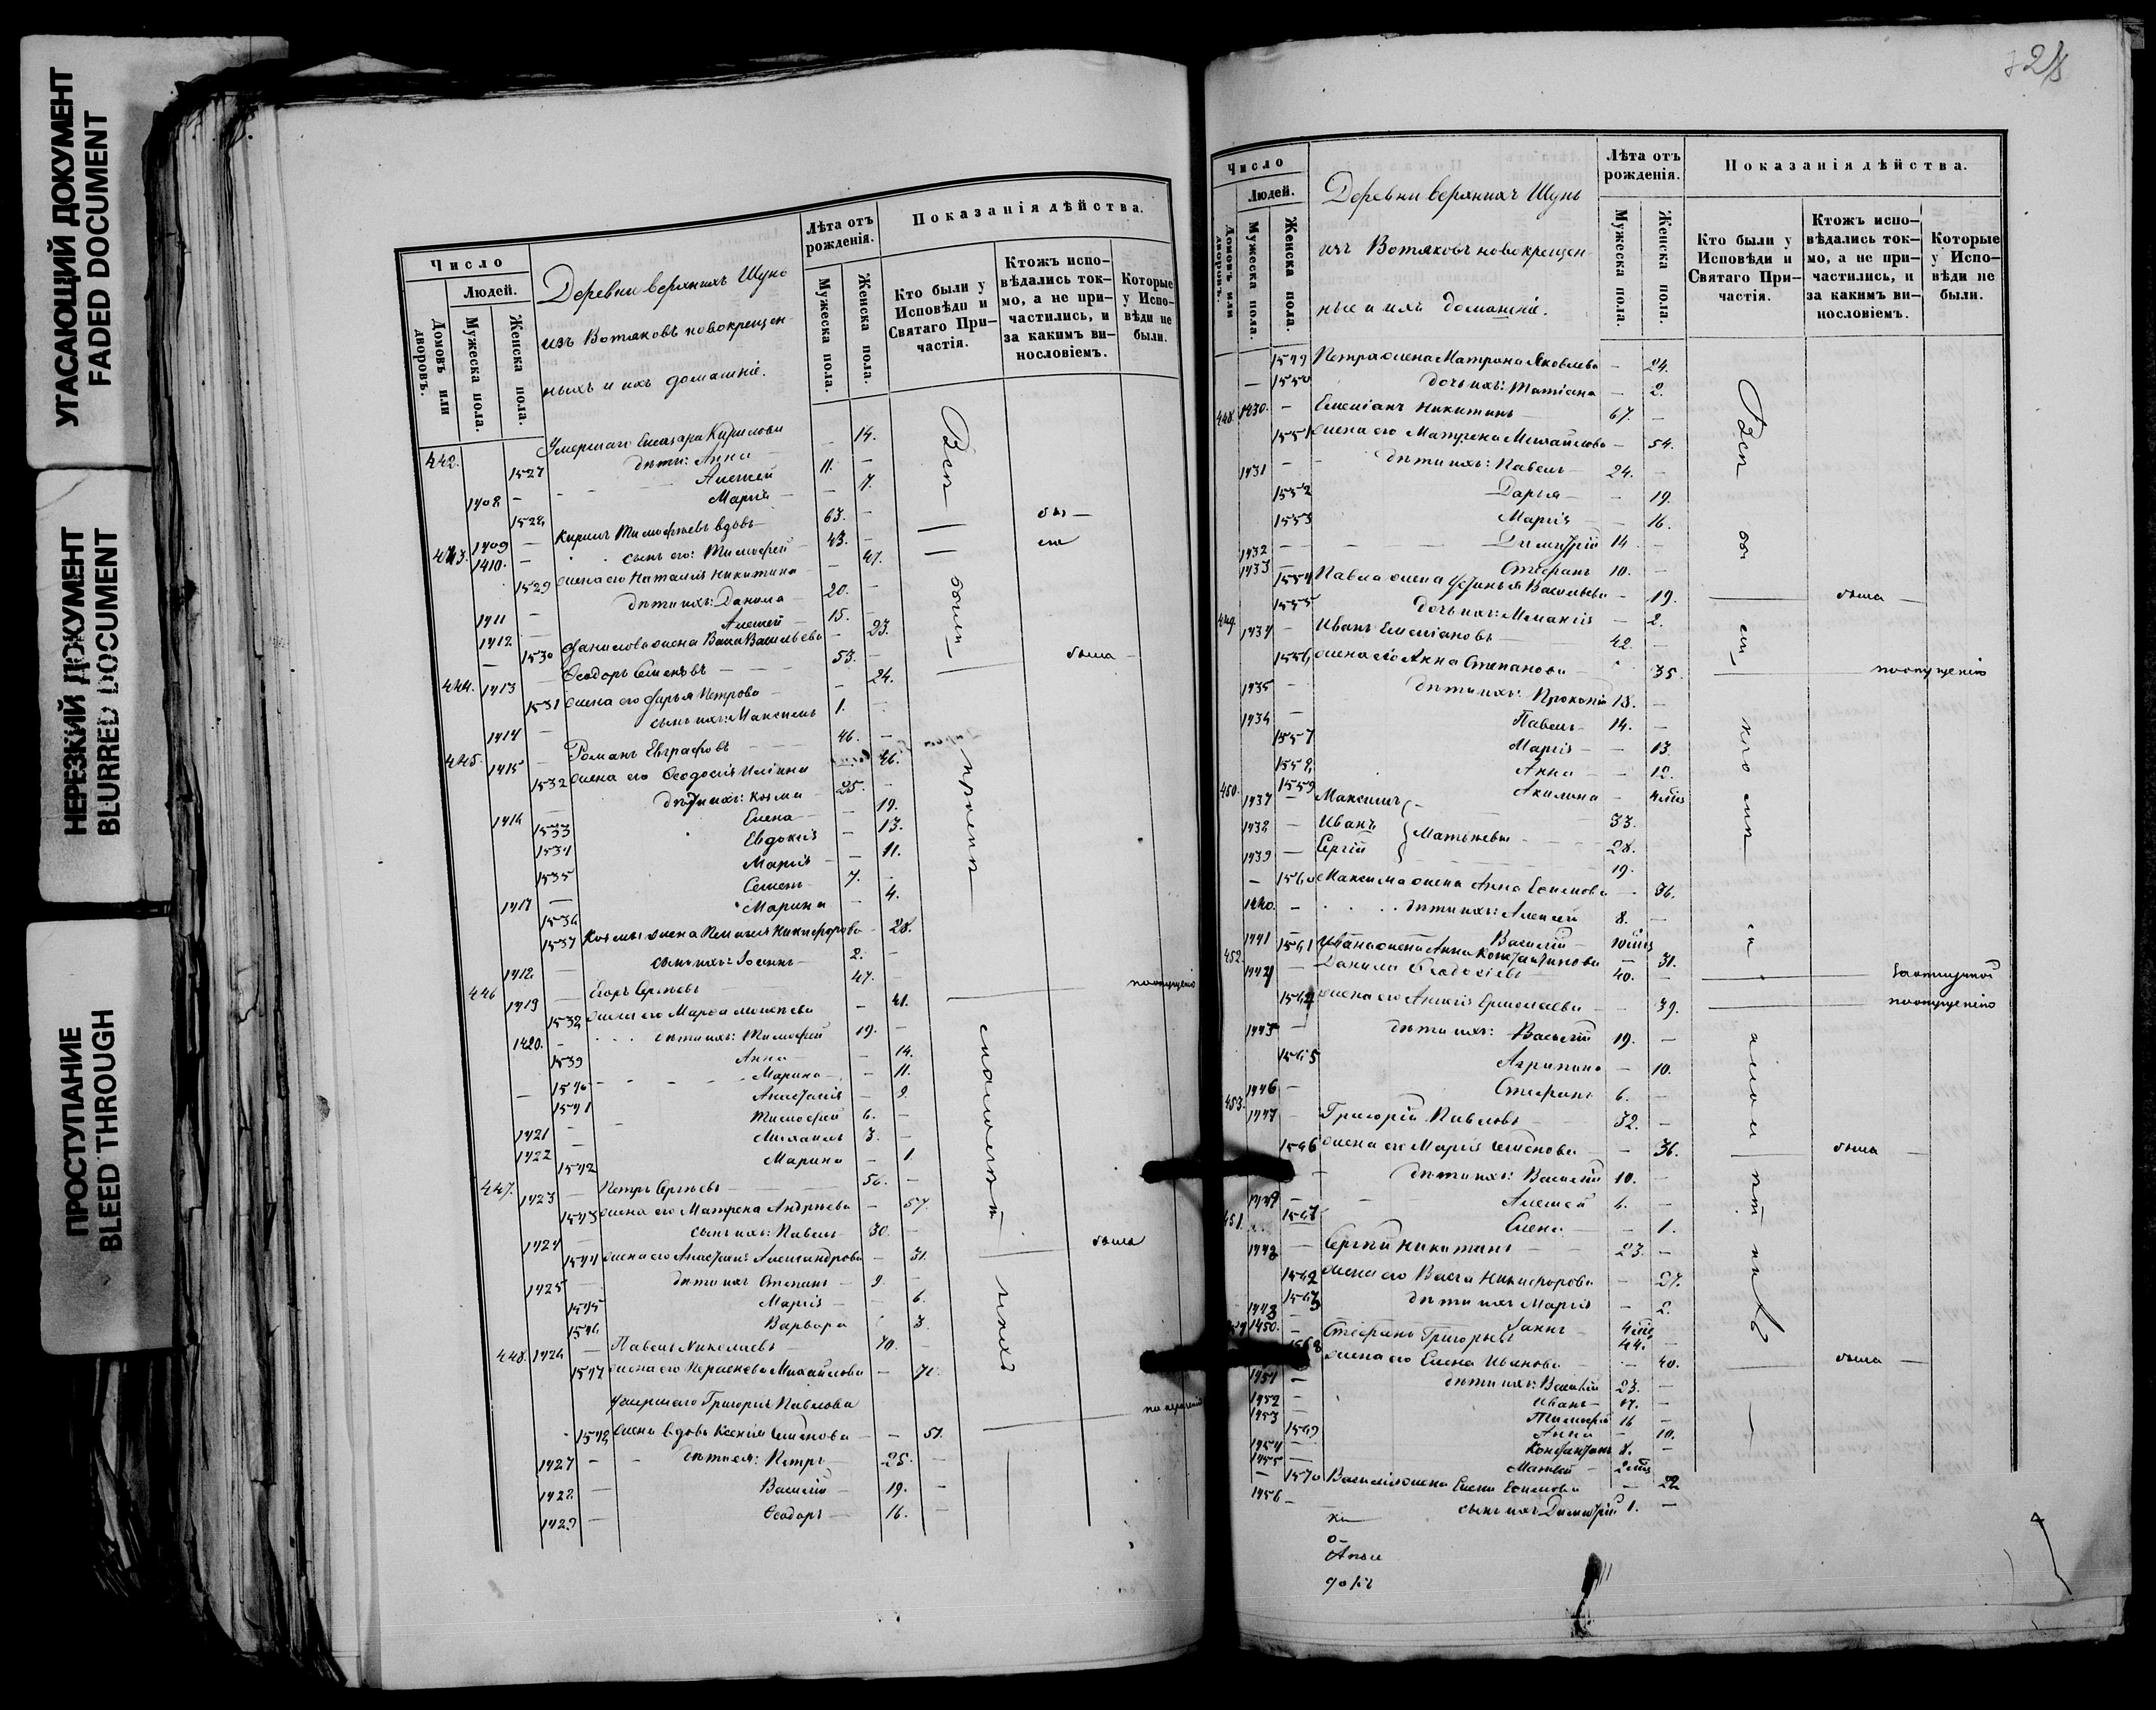 УГАСАЮЩИЙ ДОКУМЕНТ
FADED DOCUMENT
НЕРЕЗКИЙ ДОКУМЕНТ
BLURRED DOCUMENT
ПРОСТУПАНИЕ
BLEED THROUGH
Число
Людей.
Домовъ или дворовъ.
Мужеска пола.
Женска пола.
Деревни верхнихъ Шунь
изъ Вотяковъ новокрещен-
ныхъ и ихъ домашніе.
Лѣта отъ рожденія.
Мужеска пола.
Женска пола.
Показанія дѣйства.
Кто были у Исповѣди и Святаго При-частія.
Ктожъ испо-вѣдались ток-мо, а не при-частились, и за какимъ ви-нословіемъ.
Которые у Испо-вѣди не были.
442. Умершаго Елеазара Кирилова
1527 дѣти: Анна — 14.
1408 — Алексей 11. —
1528 Марія — 7.
443. 1409 — Кирилъ Тимофѣевъ вдовъ 63. —
1410. — сынъ его: Тимофей 43. —
1529 жена его Наталія Никитина — 47.
1411 — дѣти ихъ: Данила 20. —
1412 — Алексей 15. —
— 1530 Данилова жена Васса Васильева — 23.
444. 1413 — Ѳеодоръ Семеновъ 53. —
1531 жена его Дарья Петрова — 24. была
1414 — сынъ ихъ: Максимъ 1. —
445. 1415 — Романъ Евграфовъ 46. —
1532 жена его Ѳеодосія Ильина — 46.
1416 — дѣти ихъ: Козма 25. —
1533 Елена — 19.
1534 Евдокія — 13.
1535 Марія — 11.
1417 — Семенъ 7. —
1536 Марина — 4.
1537 Козмы жена Пелагея Никифорова — 28.
1418 — сынъ ихъ: Іоаннъ 2. —
446 1419 — Егоръ Сергѣевъ 47. —
1538 жена его Марфа Моисеева — 41. по опущенію
1420. — дѣти ихъ: Тимофей 19. —
1539 Анна — 14.
1540 Марина — 11.
1541 Анастасія — 9.
1421 — Тимофей 6. —
1422 — Михаилъ 3. —
1542 Марина — 1.
447. 1423 — Петръ Сергѣевъ 56. —
1543 жена его Матрена Андреева — 57.
1424 — сынъ ихъ: Павелъ 30. —
1544 жена его Анастасія Александрова — 31. была
1425 — дѣти ихъ Степанъ 9. —
1545 Марія — 6.
1546 Варвара — 3.
448. 1426 — Павелъ Николаевъ 70. —
1547 жена его Парасковья Михайлова — 70.
умершаго Григорія Павлова
1548 жена вдова Ксенія Семенова — 51.
1427 — дѣти ея: Петръ 25. —
1428 — Василій 19. —
1429 — Ѳеодоръ 16. —
Число
Людей.
Домовъ или дворовъ.
Мужеска пола.
Женска пола.
Деревни верхнихъ Шунь
изъ Вотяковъ новокрещен-
ные и ихъ домашніе.
Лѣта отъ рожденія.
Мужеска пола.
Женска пола.
Показанія дѣйства.
Кто были у Исповѣди и Святаго При-частія.
Ктожъ испо-вѣдались ток-мо, а не при-частились, и за какимъ ви-нословіемъ.
Которые у Испо-вѣди не были.
1549 Петра жена Матрона Яковлева — 24.
— 1550 дочь ихъ: Татіана — 2.
448. 1430. — Емеліанъ Никитинъ 67. —
1551 жена его Матрена Михайлова — 54.
1431 — дѣти ихъ: Павелъ 24. —
1552 Дарья — 19.
1553 Марія — 16.
1432 — Димитрій 14 —
1433 — Стефанъ 10. —
1554 Павла жена Устинья Васильева — 19. была
1555 дочь ихъ: Меланія — 2.
449. 1434 — Иванъ Емеліановъ 42. —
1556 жена его Анна Степанова — 35. по опущенію
1435 — дѣти ихъ: Прокопій 18. —
1436 — Павелъ 14. —
1557 Марія — 13.
1558 Анна — 12.
1559 Акилина — 4 мѣс
450. 1437 — Максимъ 33.
1438 — Иванъ Матвѣевы 28.
1439 — Сергій 19.
— 1560 Максима жена Анна Ефимова — 36.
1440. — дѣти ихъ: Алексей 8. —
1441 Василій 10 мѣс
1561 Ивана жена Анна Константинова — 31.
452. — Данила Ѳеодосіевъ 40. —
жена его Анисія Ермолаева — 39. по опущенію
1445 — дѣти ихъ: Василій 19. —
1565 Агрипина — 10.
1446 — Стефанъ 6. —
453. 1447 — Григорій Павловъ 32. —
1566 жена его Марія Семенова — 36. была
— дѣти ихъ: Василій 10. —
1449 — Алексей 6. —
1567 Елена — 1.
451. 1442 — Сергій Никитинъ 23. —
1562 жена его Васса Никифорова — 27.
1563 дѣти ихъ Марія — 2.
1443 Іоаннъ 4 мѣс
1450. — Стефанъ Григорьевъ 44. —
1568 жена его Елена Иванова — 40. была
1451 — дѣти ихъ: Василій 23. —
1452 — Иванъ 17. —
1453 — Тимофей 16 —
1569 Анна — 10.
1454 — Константинъ 8. —
1455 — Матвей 2 мѣс
— 1570 Василія жена Елена Ефимова — 22
1456 — сынъ ихъ Димитрій 1. —